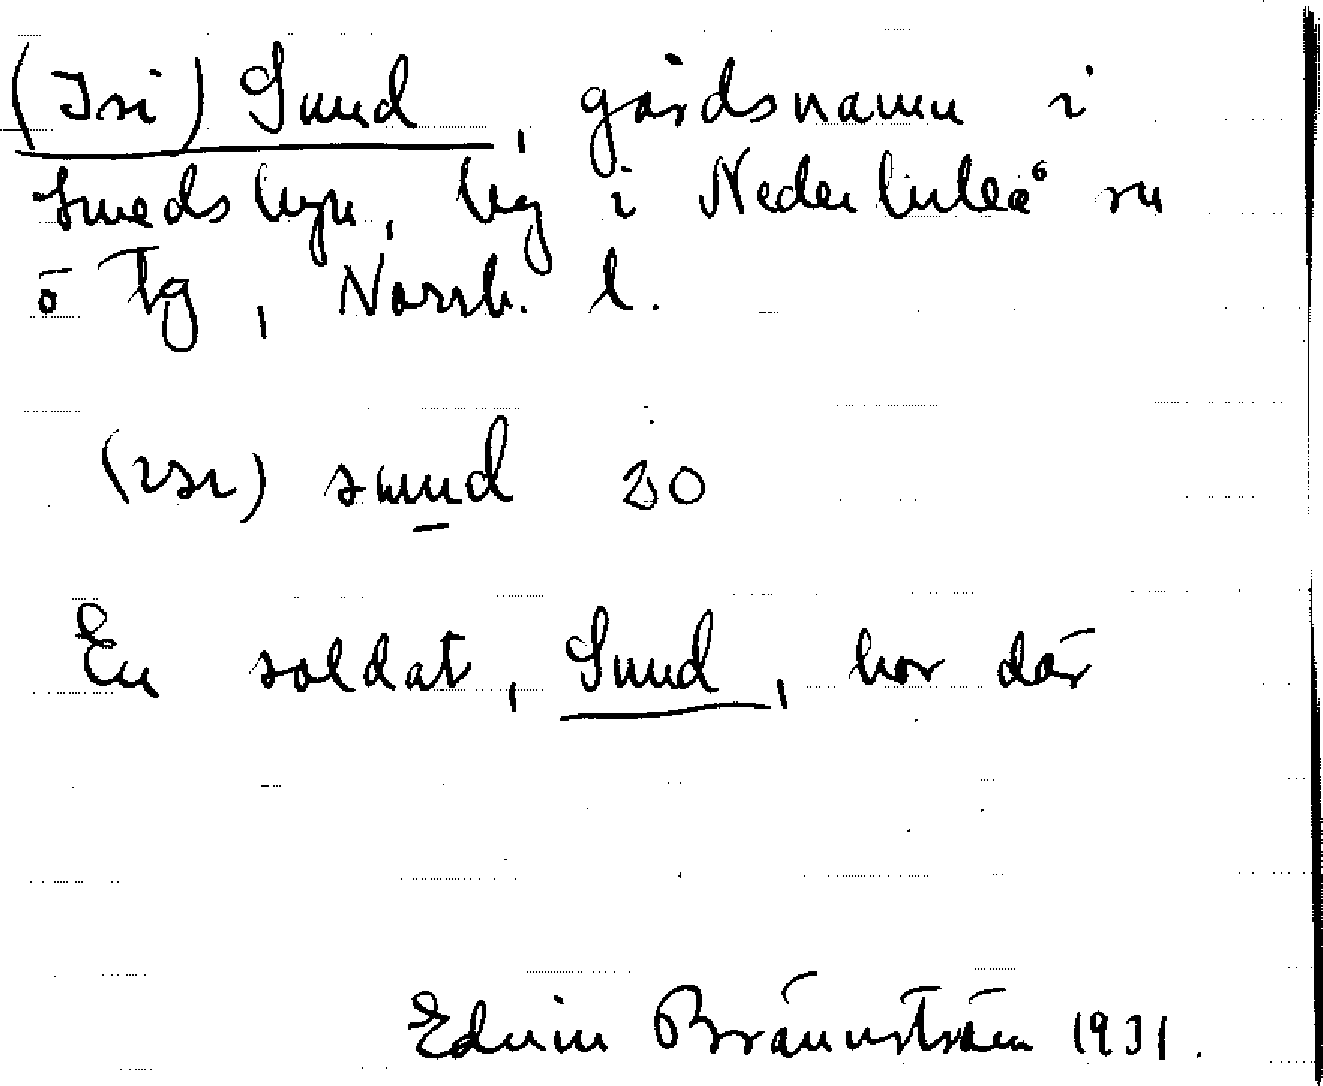 (Isi) Sund, gårdsnamn i
Smedsbyn, by i Nederluleå sn
ö tg, Norrb. l.
(ısı) sund 30
En soldat, Sund, bor där
Edvin Brännström 1931.